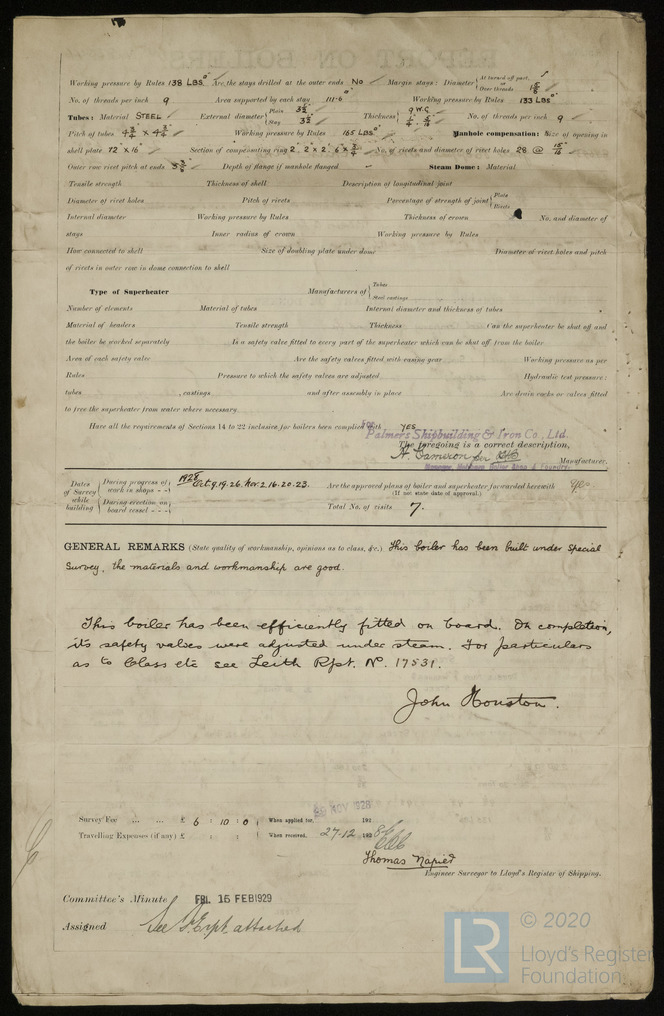 Working pressure by Rules 138 LBS□" Are the stays drilled at the outer ends No Margin stays: Diameter { At turned off part, or Over threads 1 5/8"
No. of threads per inch 9 Area supported by each stay Working pressure by Rules 133 LBS□"
Tubes: Material STEEL External diameter { Plain 3 1/2" Stay 3 1/2" Thickness { 9 W.G. 1/4" 5/16" No. of threads per inch 9
Pitch of tubes 4 3/4" × 4 3/4" Working pressure by Rules 165 LBS□" Manhole compensation: Size of opening in
shell plate × 16" Section of compensating ring No. of rivets and diameter of rivet holes 28 @ 15/16"
Outer row rivet pitch at ends Depth of flange if manhole flanged – Steam Dome: Material
Tensile strength Thickness of shell Description of longitudinal joint
Diameter of rivet holes Pitch of rivets Percentage of strength of joint { Plate Rivets
Internal diameter Working pressure by Rules Thickness of crown No. and diameter of
stays Inner radius of crown Working pressure by Rules
How connected to shell Size of doubling plate under dome Diameter of rivet holes and pitch
of rivets in outer row in dome connection to shell
Type of Superheater Manufacturers of { Tubes Steel castings
Number of elements Material of tubes Internal diameter and thickness of tubes
Material of headers Tensile strength Thickness Can the superheater be shut off and
the boiler be worked separately Is a safety valve fitted to every part of the superheater which can be shut off from the boiler
Area of each safety valve Are the safety valves fitted with easing gear Working pressure as per
Rules Pressure to which the safety valves are adjusted Hydraulic test pressure:
tubes , castings and after assembly in place Are drain cocks or valves fitted
to free the superheater from water where necessary
Have all the requirements of Sections 14 to 22 inclusive for boilers been complied with YES
For
Palmers Shipbuilding & Iron Co., Ltd.
The foregoing is a correct description,
A. Cameron for
Manufacturer.
Dates of Survey while building { During progress of work in shops - - } 1928 Oct 9.19.26. Nov. 2.16.20.23. Are the approved plans of boiler and superheater forwarded herewith Yes
(If not state date of approval.)
{ During erection on board vessel - - - } Total No. of visits 7.
GENERAL REMARKS (State quality of workmanship, opinions as to class, &c.) This boiler has been built under special
survey, the materials and workmanship are good.
This boiler has been efficiently fitted on board. On completion,
its safety valves were adjusted under steam. For particulars
as to Class etc see Leith Rpt. No. 17531.
John Houston.
Survey Fee ... ... £ 6 : 10 : 0 } When applied for, NOV 1928 192
Travelling Expenses (if any) £ : : } When received, 27.12. 1928
Thomas Napier
Engineer Surveyor to Lloyd's Register of Shipping.
Committee's Minute FRI. 15 FEB 1929
Assigned See attached
LR © 2020
Lloyd's Register
Foundation